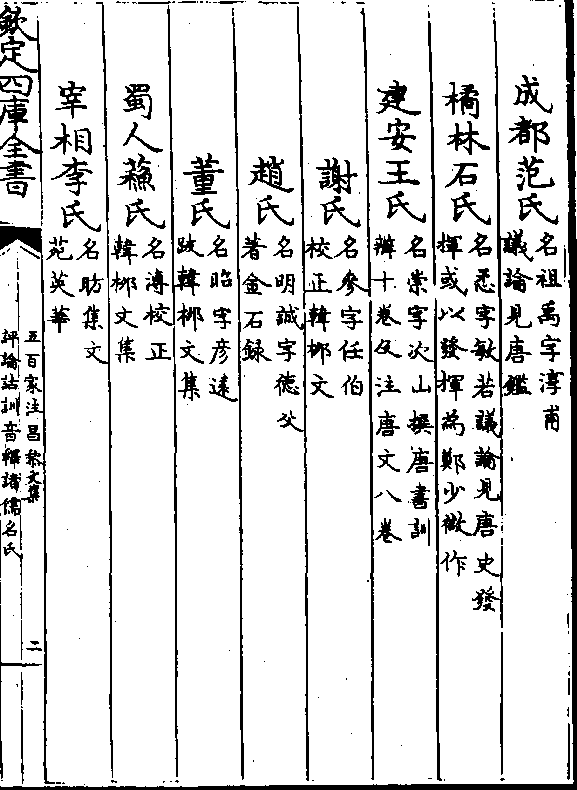 成都范氏名祖禹字淳甫議論見唐鑑
橘林石氏名悉字敏若議論見唐史發揮或以發揮為鄭少微作
建安王氏名崇字次山撰唐書訓辯十卷及注唐文八卷
謝氏名參字任伯校正韓柳文
趙氏名明誠字德父著金石録
董氏名昭字彦遠跋韓柳文集
蜀人蘓氏名溥校正韓柳文集
宰相李氏名昉集文苑英華
欽定四庫全書
五百家注昌黎文集
評論詁訓音釋諸儒名氏
二